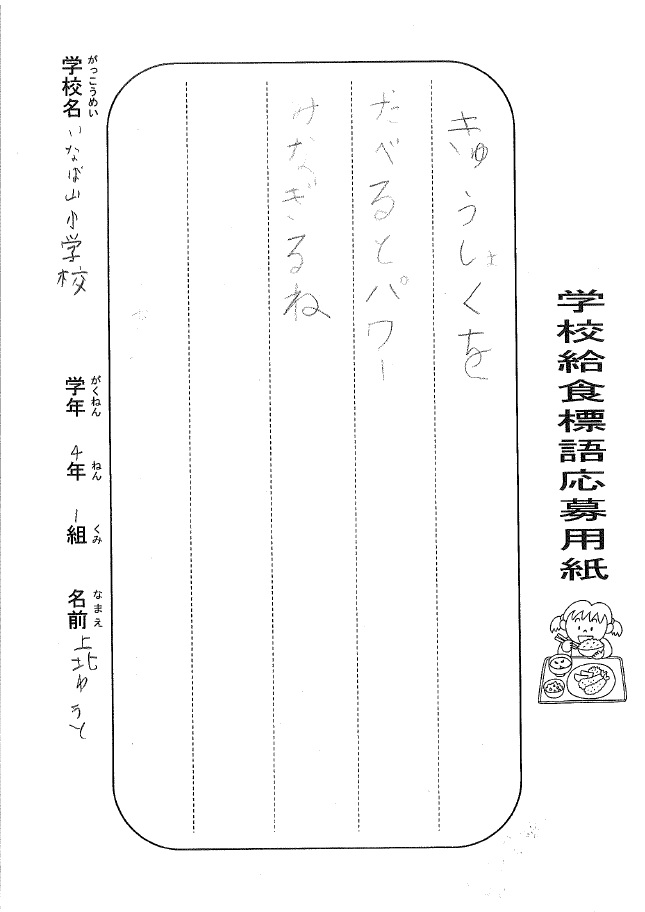 学校給食標語応募用紙
きゅうしょくを
たべるとパワー
みなぎるね
学校名 がっこうめい いなば山小学校
学年 がくねん 4年 ねん 1組 くみ 名前 なまえ 上北ゆうと